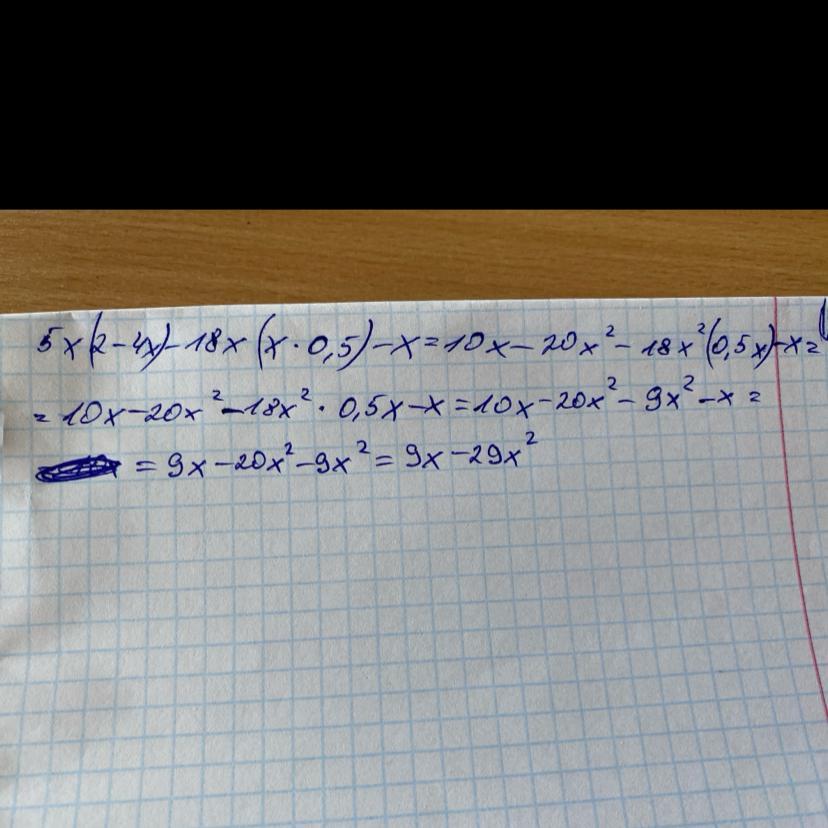 5x(2-4x)-18x(x·0,5)-x=10x-20x²-18x²(0,5x)-x=
=10x-20x²-18x²·0,5x-x=10x-20x²-9x²-x=
=9x-20x²-9x²=9x-29x²